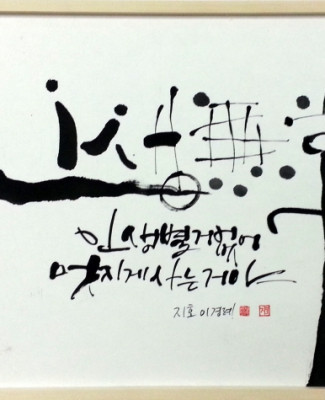 인생 별거 없어
멋지게 사는거야
지호 이경례